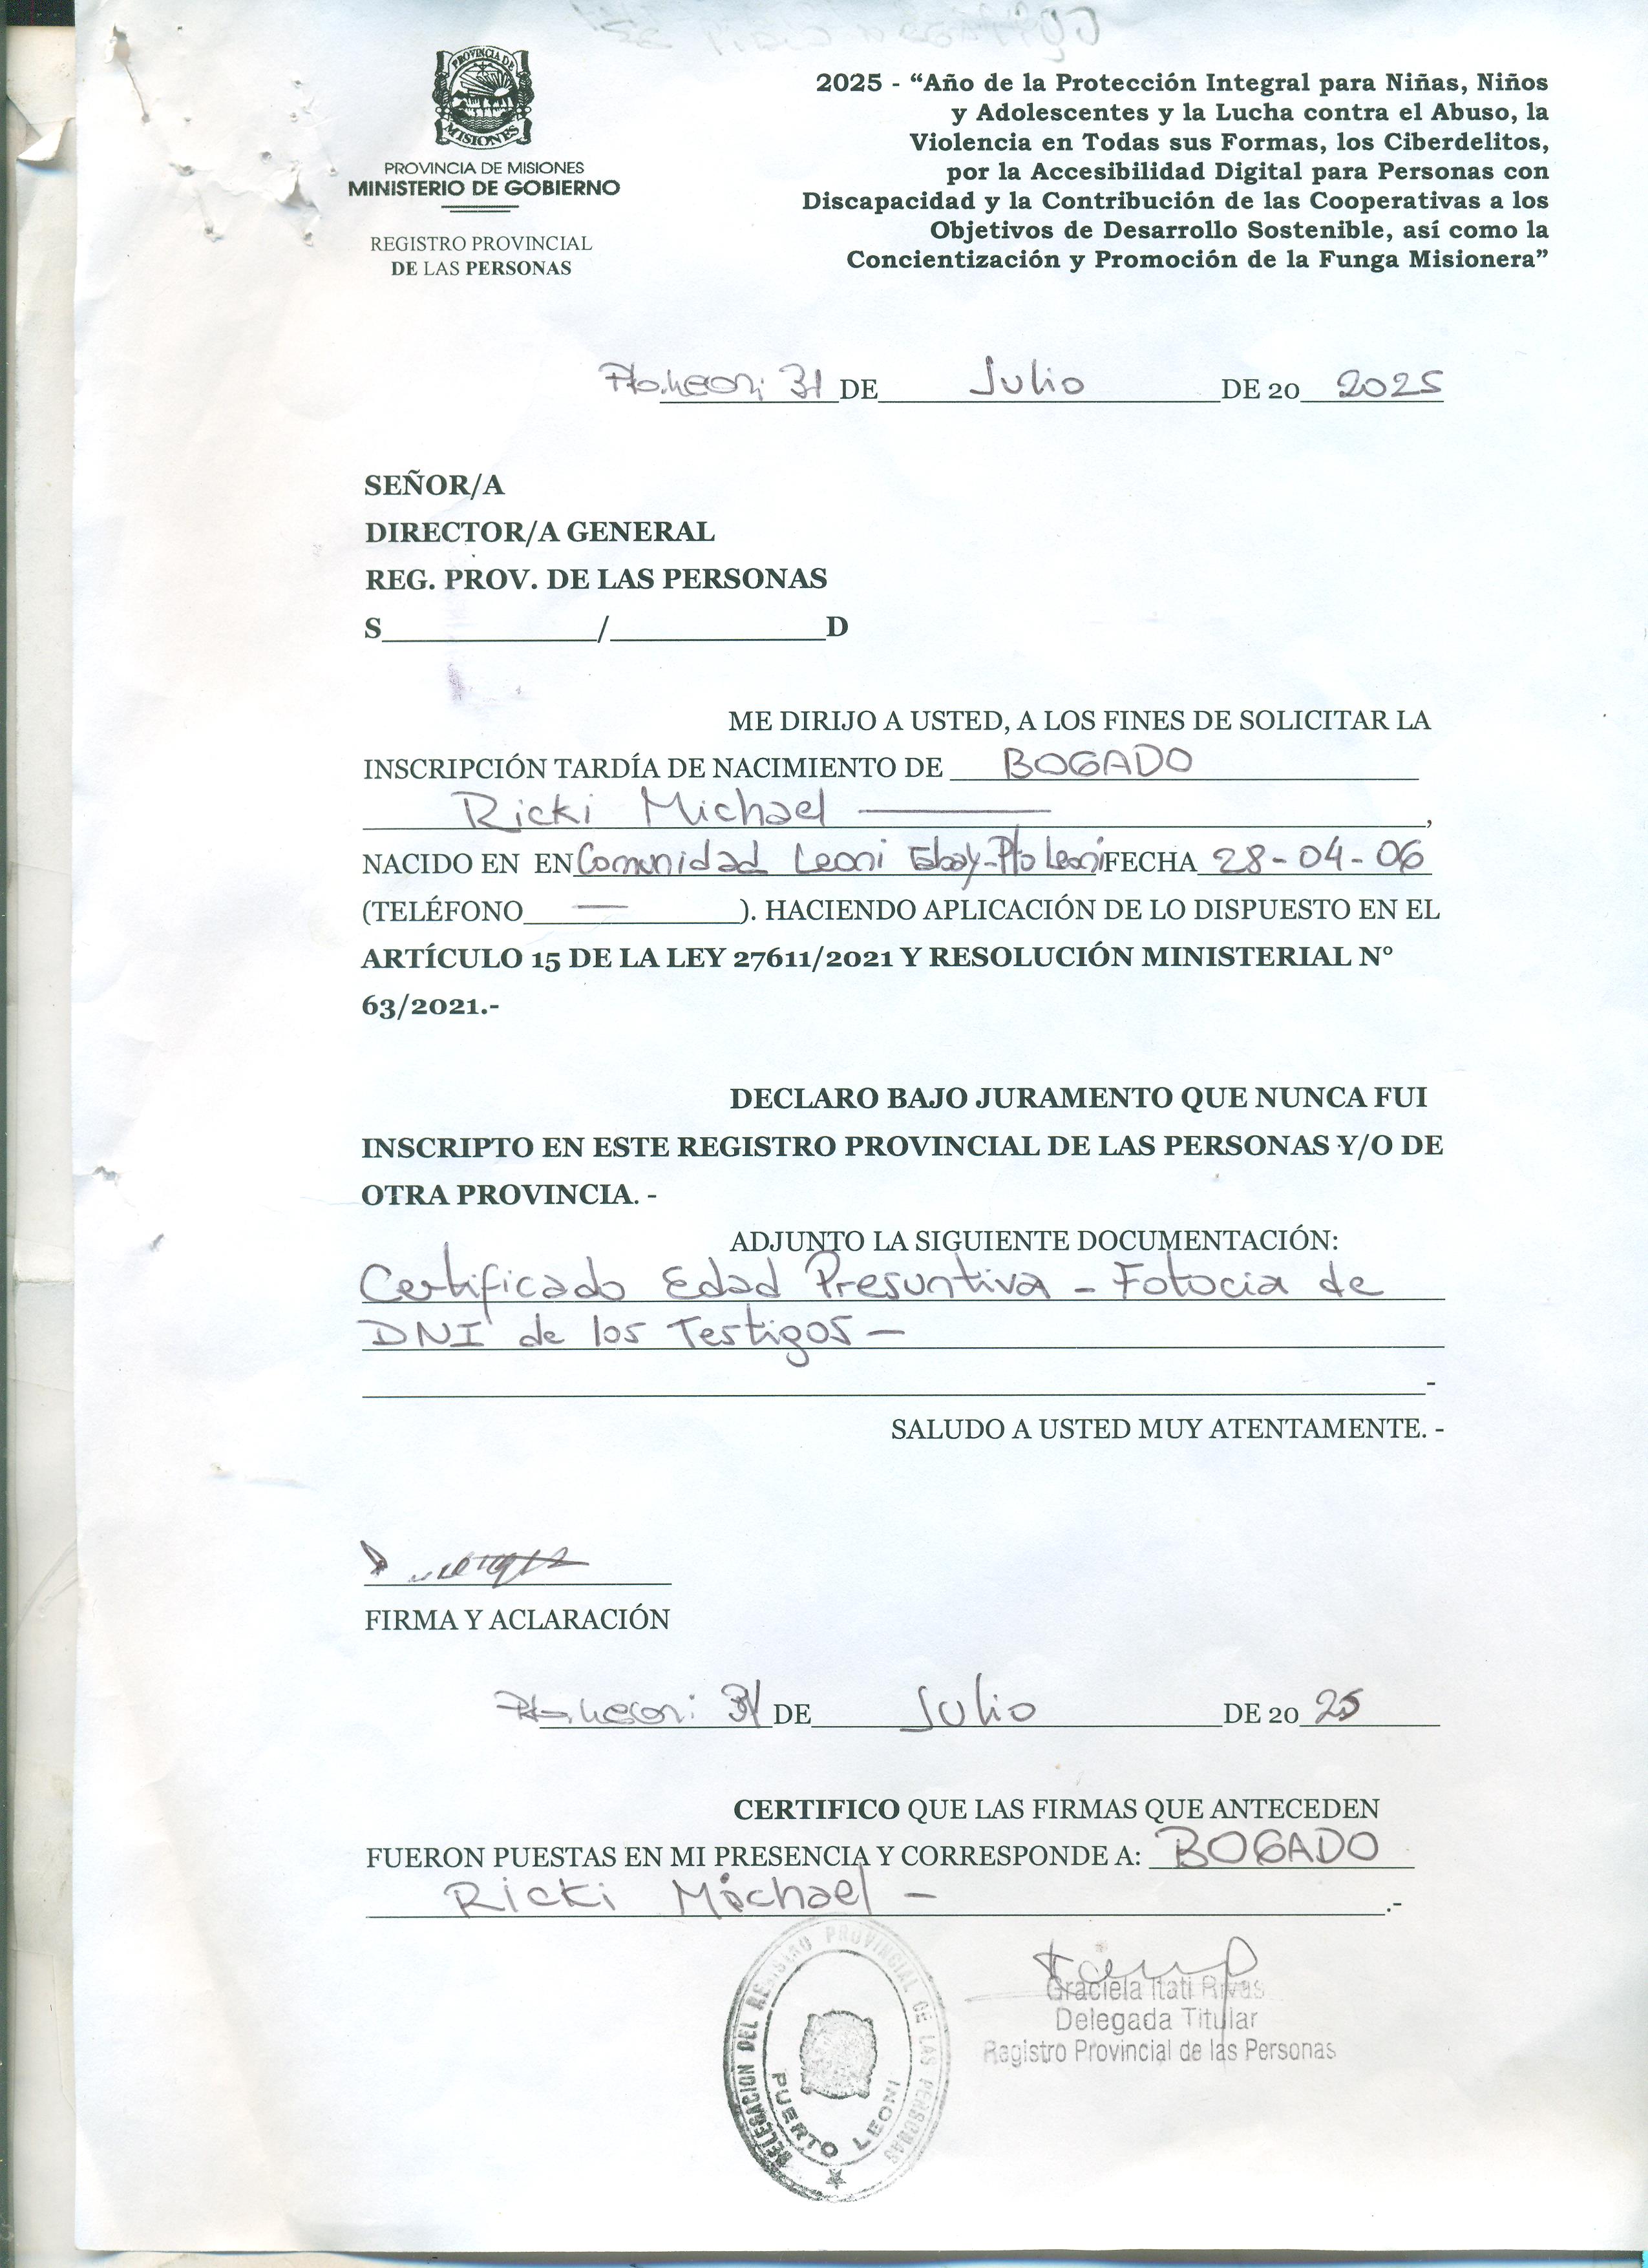 PROVINCIA DE
MISIONES
PROVINCIA DE MISIONES
MINISTERIO DE GOBIERNO
REGISTRO PROVINCIAL
DE LAS PERSONAS
2025 - “Año de la Protección Integral para Niñas, Niños
y Adolescentes y la Lucha contra el Abuso, la
Violencia en Todas sus Formas, los Ciberdelitos,
por la Accesibilidad Digital para Personas con
Discapacidad y la Contribución de las Cooperativas a los
Objetivos de Desarrollo Sostenible, así como la
Concientización y Promoción de la Funga Misionera”
Pto. Leoni 31 DE Julio DE 20 2025
SEÑOR/A
DIRECTOR/A GENERAL
REG. PROV. DE LAS PERSONAS
S____________/____________D
ME DIRIJO A USTED, A LOS FINES DE SOLICITAR LA
INSCRIPCIÓN TARDÍA DE NACIMIENTO DE BOGADO
Ricki Michael ———,
NACIDO EN EN Comunidad Leoni Pto Leoni FECHA 28-04-06
(TELÉFONO — ). HACIENDO APLICACIÓN DE LO DISPUESTO EN EL
ARTÍCULO 15 DE LA LEY 27611/2021 Y RESOLUCIÓN MINISTERIAL N°
63/2021.-
DECLARO BAJO JURAMENTO QUE NUNCA FUI
INSCRIPTO EN ESTE REGISTRO PROVINCIAL DE LAS PERSONAS Y/O DE
OTRA PROVINCIA. -
ADJUNTO LA SIGUIENTE DOCUMENTACIÓN:
Certificado Edad Presuntiva - Fotocia de
DNI de los Testigos —
-
SALUDO A USTED MUY ATENTAMENTE. -
FIRMA Y ACLARACIÓN
Pto. Leoni 31 DE Julio DE 20 25
CERTIFICO QUE LAS FIRMAS QUE ANTECEDEN
FUERON PUESTAS EN MI PRESENCIA Y CORRESPONDE A: BOGADO
Ricki Michael — .-
DELEGACION DEL REGISTRO PROVINCIAL DE LAS PERSONAS
PUERTO LEONI
Graciela Itati Rivas
Delegada Titular
Registro Provincial de las Personas